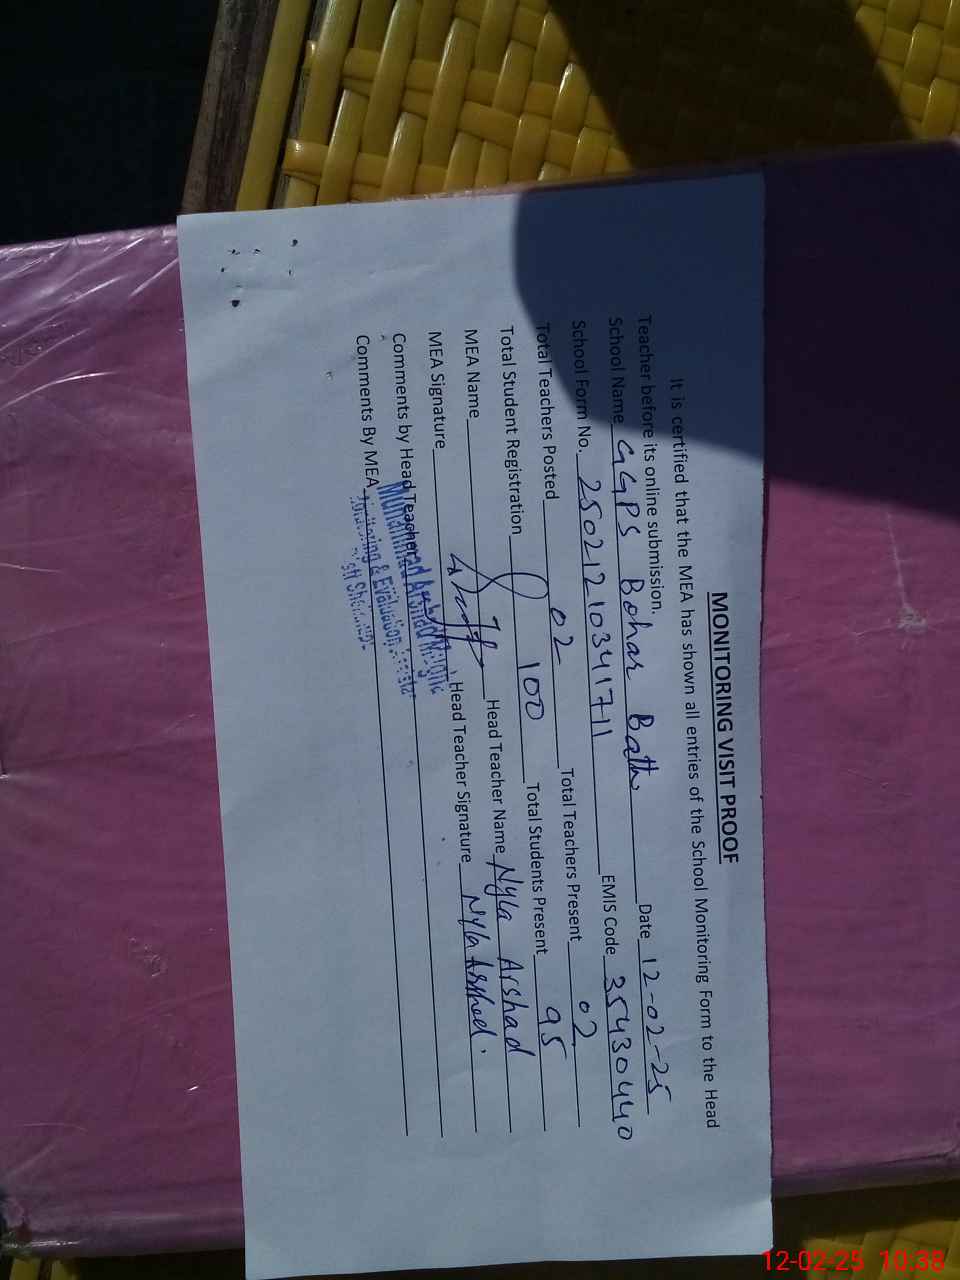 MONITORING VISIT PROOF
It is certified that the MEA has shown all entries of the School Monitoring Form to the Head
Teacher before its online submission.
School Name GGPS Bohar Bath Date 12-02-25
School Form No. 25021210341711 EMIS Code 35430440
Total Teachers Posted 02 Total Teachers Present 02
Total Student Registration 100 Total Students Present 95
MEA Name Head Teacher Name Nyla Arshad
MEA Signature Head Teacher Signature Nyla Arshad.
Comments by Head Teacher
Muhammad Arshad
Comments By MEA
Monitoring & Evaluation
12-02-25 10:38